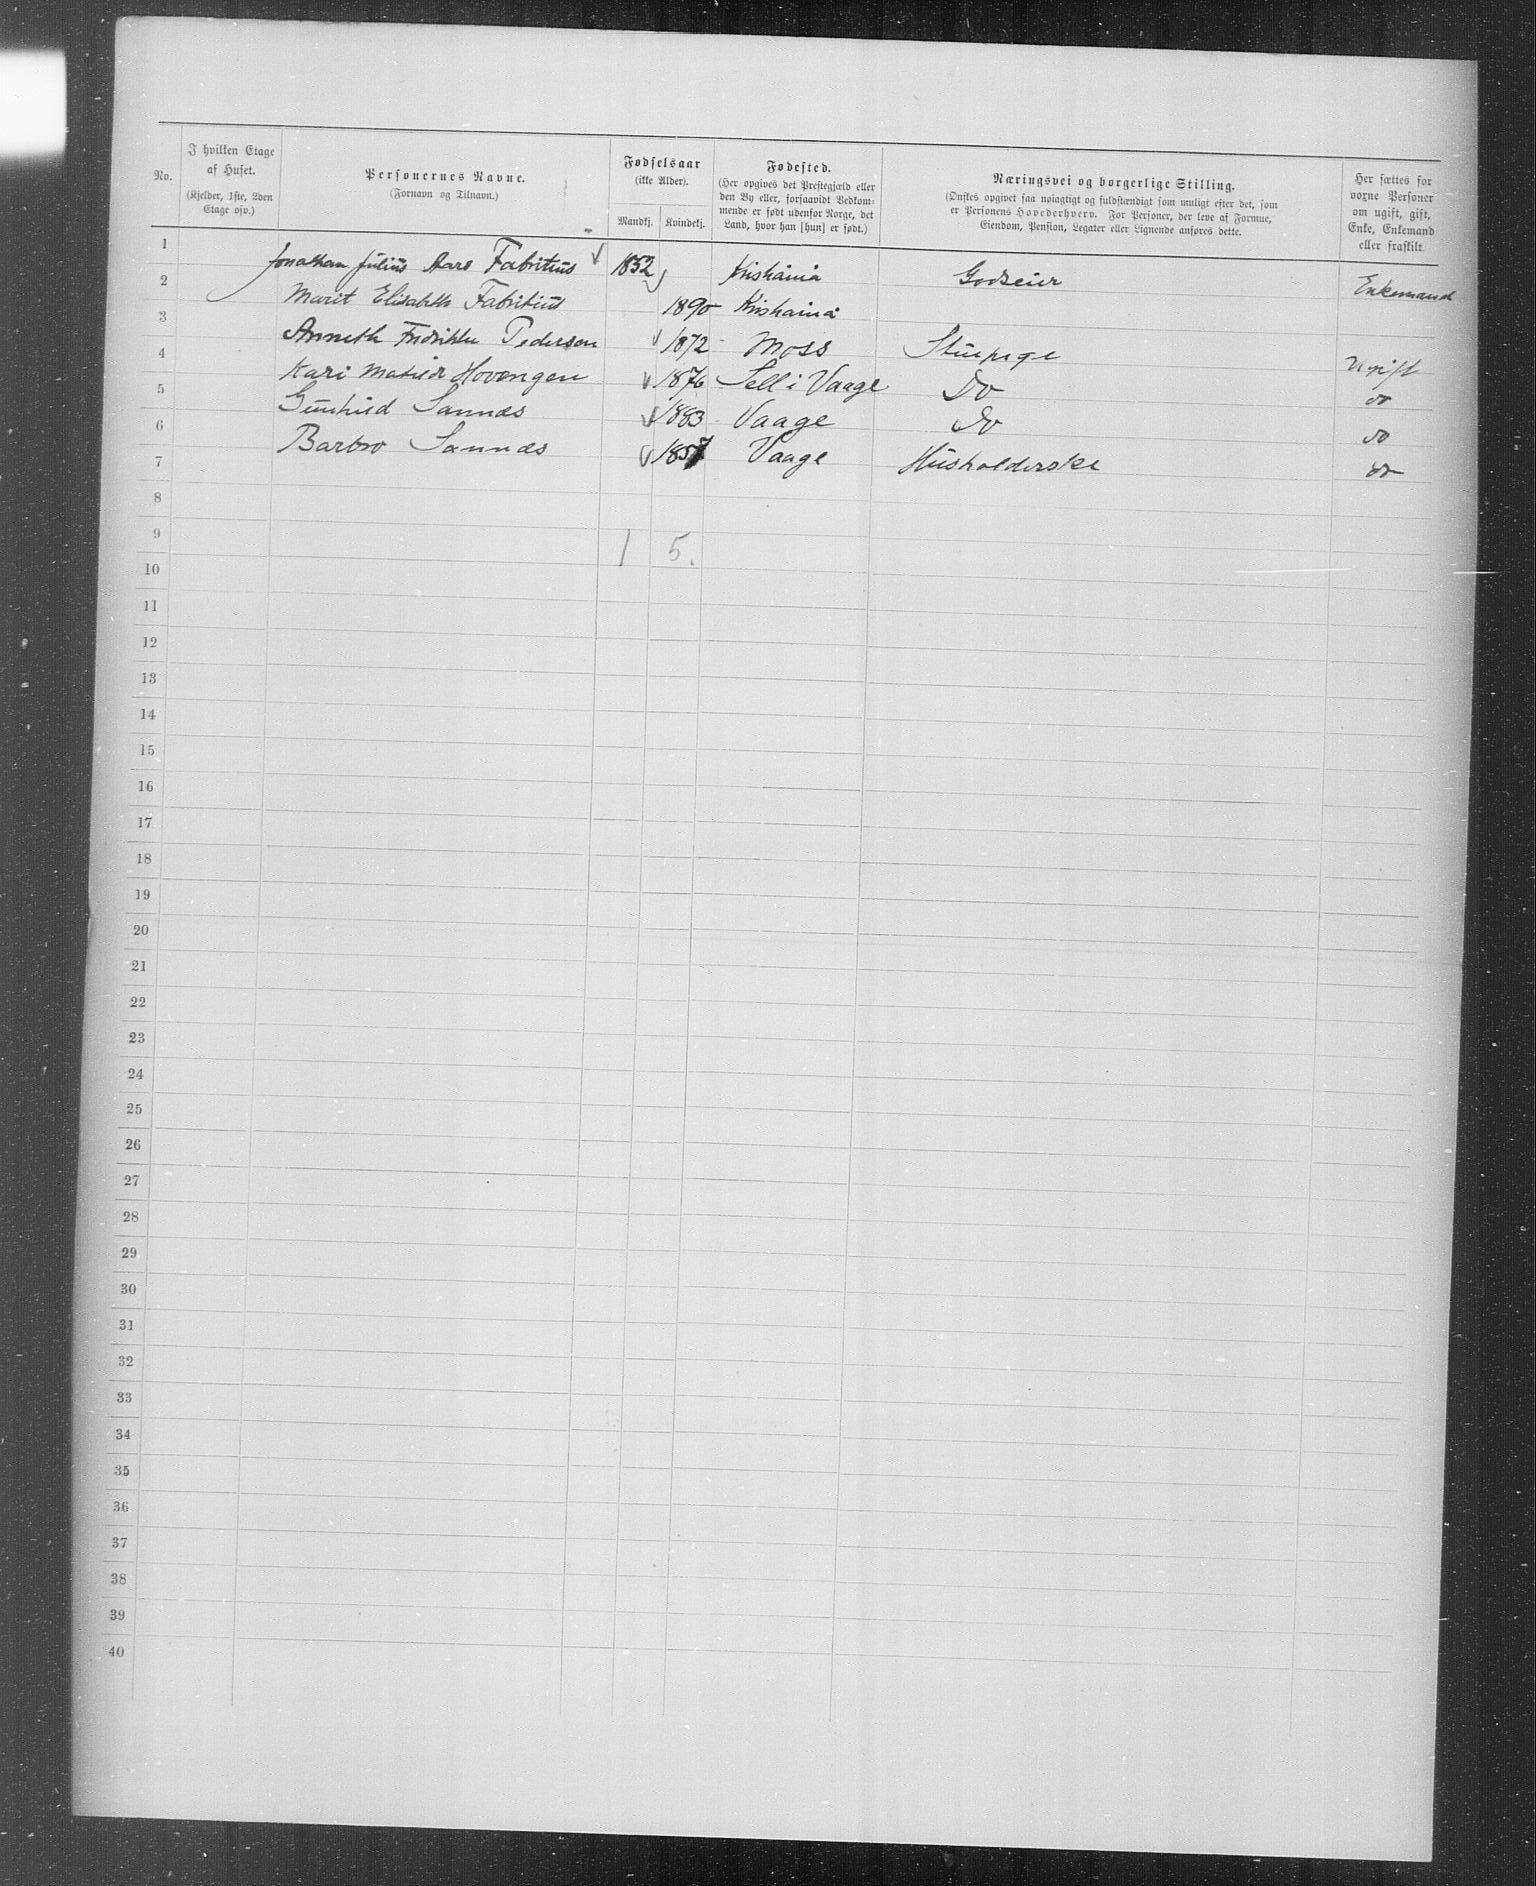 No.
I hvilken Etage af Huset.
(Kjelder, 1ste, 2den Etage osv.)
Personernes Navne.
(Fornavn og Tilnavn.)
Fødselsaar
(ikke Alder).
Mandkj. Kvindekj.
Fødested.
(Her opgives det Prestegjæld eller
den By eller, forsaavidt Vedkom-
mende er født udenfor Norge, det
Land, hvor han [hun] er født.)
Næringsvei og borgerlige Stilling.
(Ønskes opgivet saa nøiagtigt og fuldstændigt som muligt efter det, som
er Personens Hovederhverv. For Personer, der leve af Formue,
Eiendom, Pension, Legater eller Lignende anføres dette.
Her sættes for
voxne Personer
om ugift, gift,
Enke, Enkemand
eller fraskilt.
1 Jonathan Julius Aars Fabritius 1852 Kristiania Godseier Enkemand
2 Marit Elisabeth Fabritius 1890 Kristiania
3 Anneth Fredrikke Pedersen 1872 Moss Stuepige Ugift
4 Kari Mathilde Hovengen 1876 Sell i Vaage Do do
5 Gunhild Sannæs 1883 Vaage Do do
6 Barbro Sannæs 1857 Vaage Husholderske do
7
8
9 1 5.
10
11
12
13
14
15
16
17
18
19
20
21
22
23
24
25
26
27
28
29
30
31
32
33
34
35
36
37
38
39
40